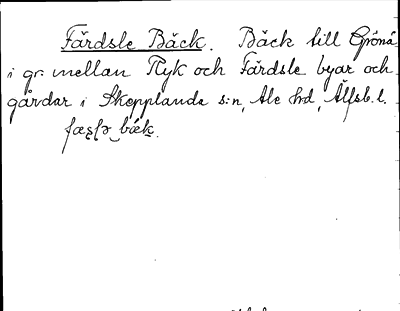 Färdsle Bäck. Bäck till Grönå
i gr. mellan Ryk och Färdsle byar och
gårdar i Skepplanda s:n, Ale hd, Älfsb. l.
bæk.